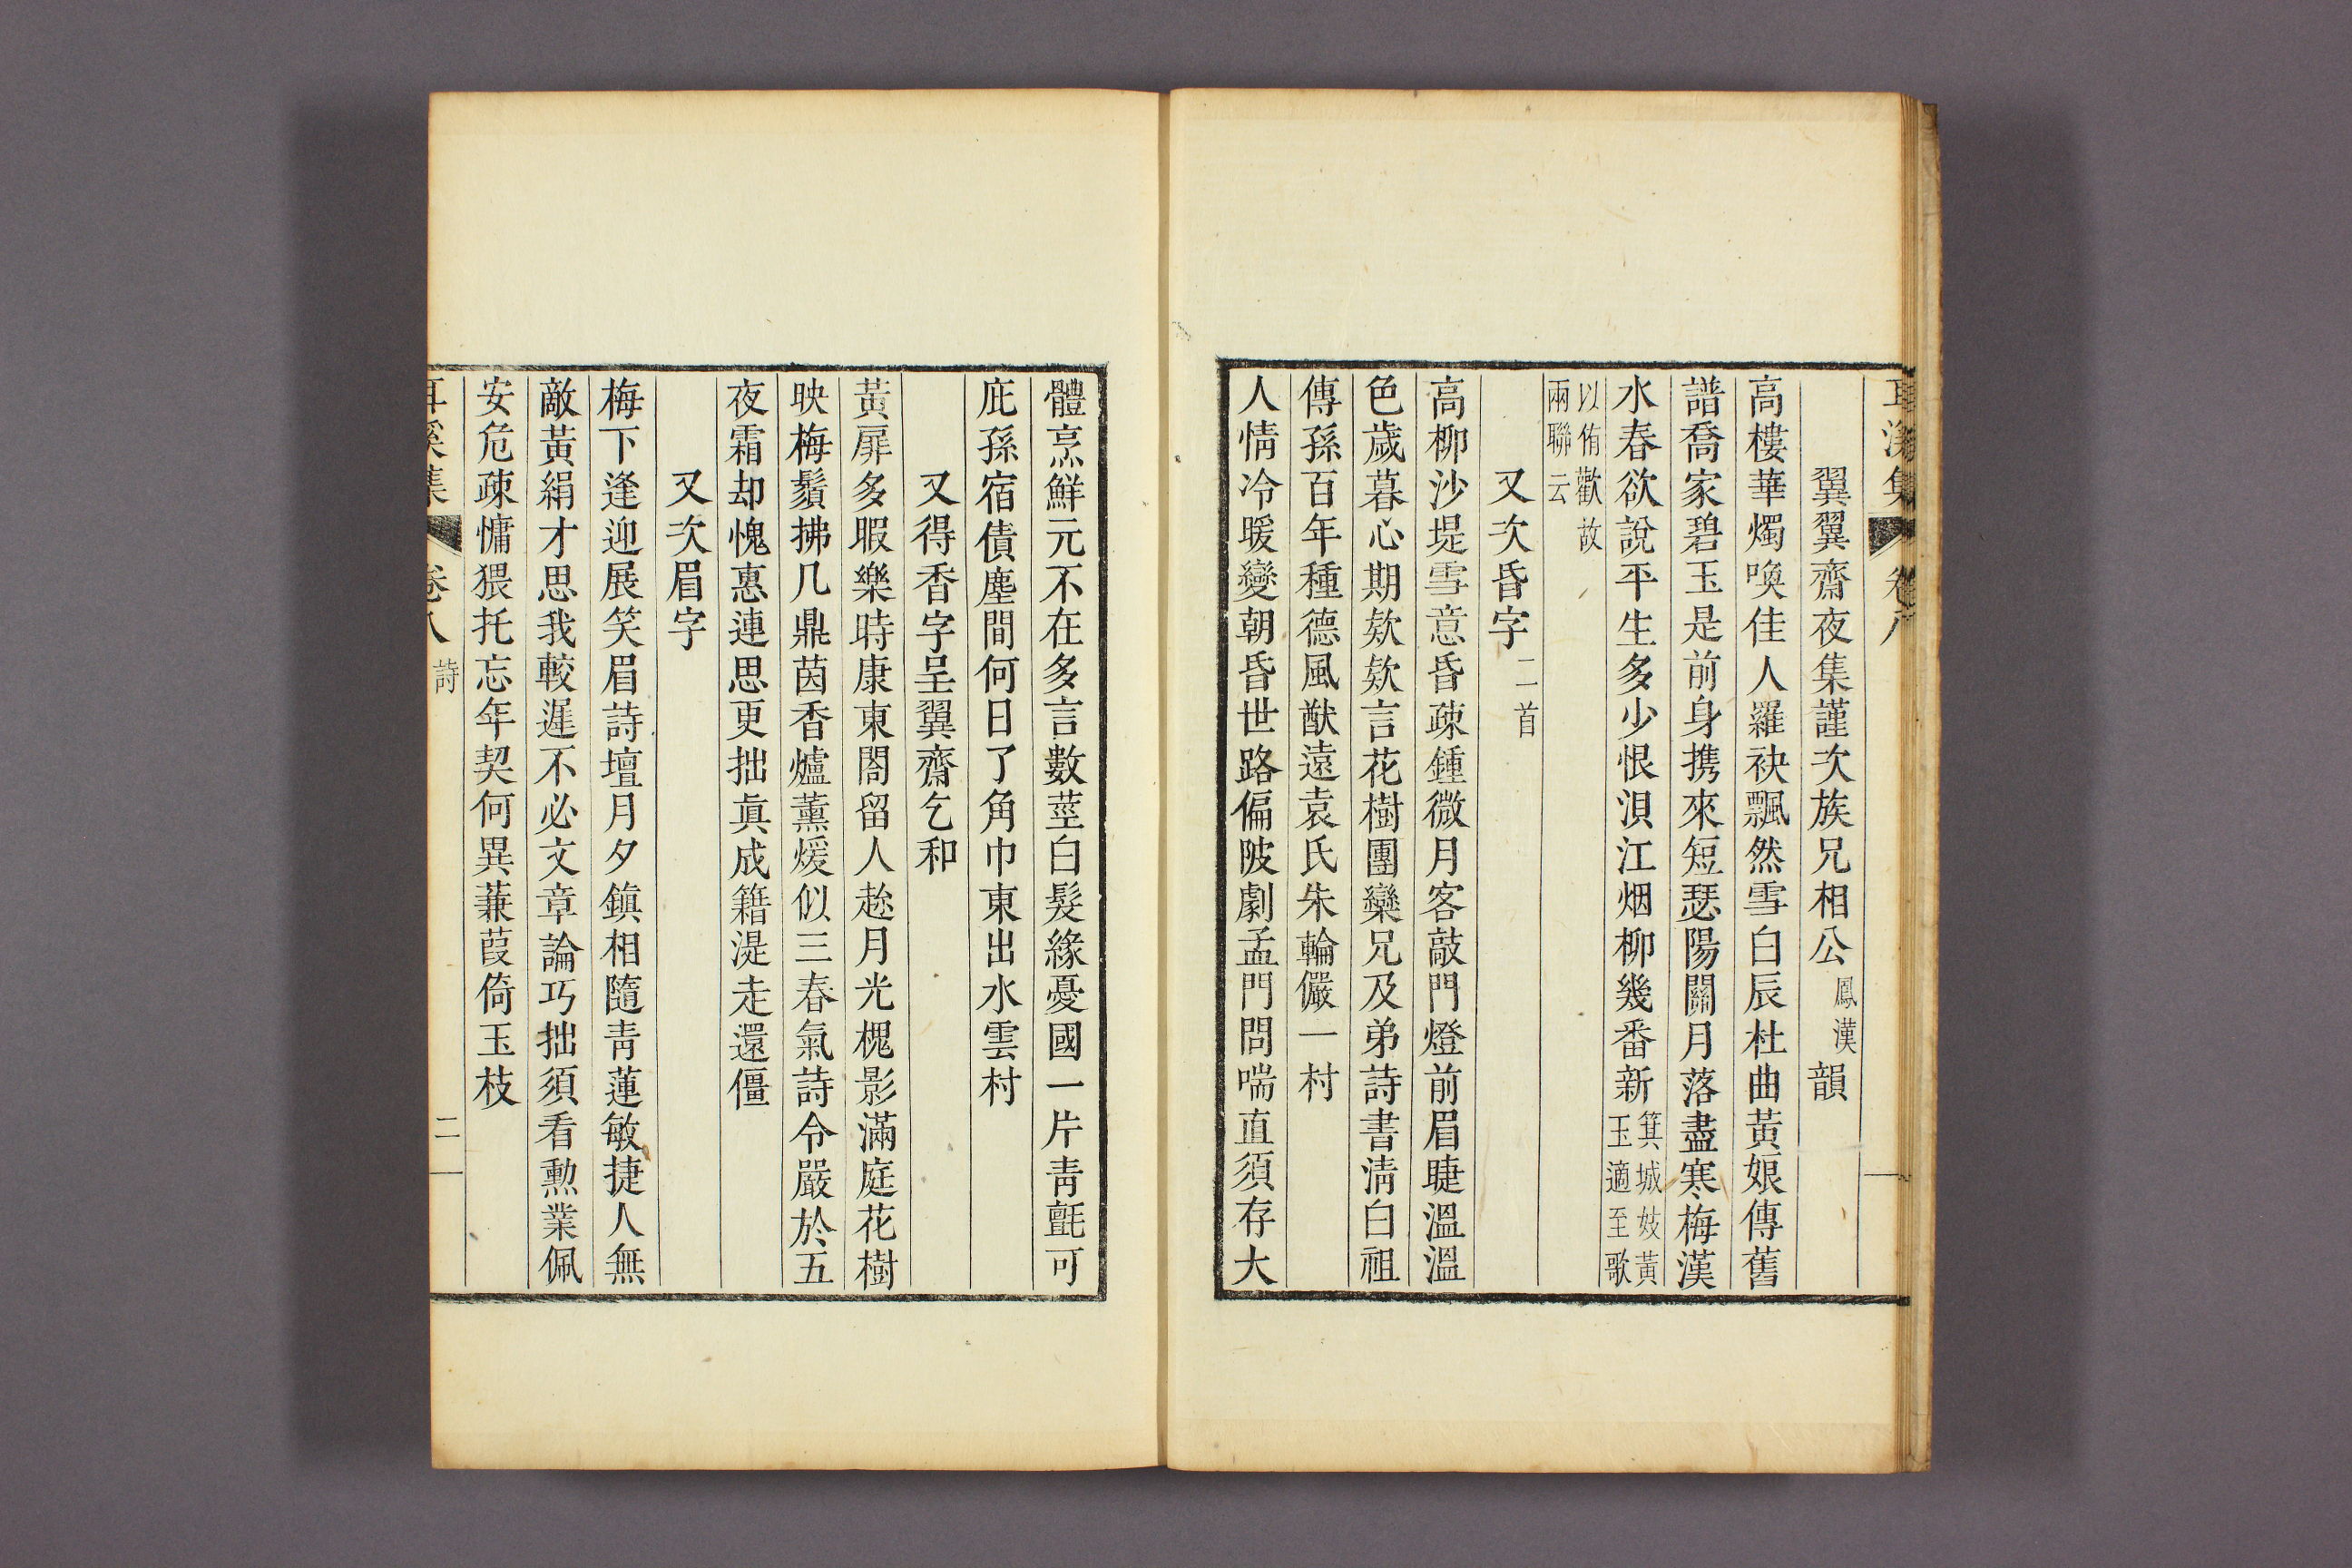 耳溪集 卷八
翼翼齋夜集謹次族兄相公鳳漢韻
高樓華燭喚佳人羅袂飄然雪白辰杜曲黃娘傳舊
譜喬家碧玉是前身携來短瑟陽關月落盡寒梅漢
水春欲說平生多少恨浿江烟柳幾番新箕城妓黃玉適至歌
以侑歡故兩聯云
又次昏字二首
高柳沙堤雪意昏疎鍾微月客敲門燈前眉睫溫溫
色歲暮心期欵欵言花樹團欒兄及弟詩書淸白祖
傳孫百年種德風猷遠袁氏朱輪儼一村
人情冷暖變朝昏世路偏陂劇孟門問喘直須存大
體烹鮮元不在多言數莖白髮緣憂國一片靑氈可
庇孫宿債塵間何日了角巾東出水雲村
又得香字呈翼齋乞和
黃扉多暇樂時康東閤留人趁月光槐影滿庭花樹
映梅鬚拂几鼎茵香爐薰煖似三春氣詩令嚴於五
夜霜却愧惠連思更拙眞成籍湜走還僵
又次眉字
梅下逢迎展笑眉詩壇月夕鎭相隨靑蓮敏捷人無
敵黃絹才思我較遲不必文章論巧拙須看勲業佩
安危疎慵猥托忘年契何異蒹葭倚玉枝
耳溪集 卷八 詩 二